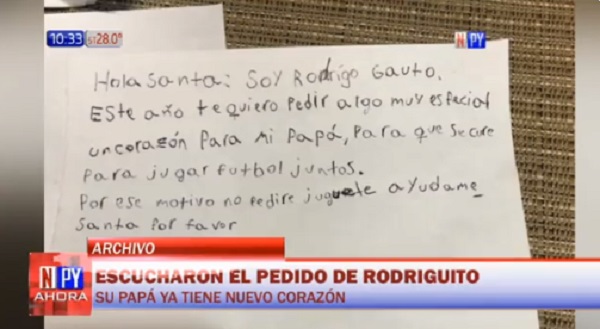 10:33 ST 28.0°
NPY
Hola santa: Soy Rodrigo Gauto.
Este año te quiero pedir algo muy especial
un corazón Para Mi Papá, Para que se cure
Para jugar futbol juntos.
Por ese motivo no pedire juguete ayudame
Santa Por favor
ARCHIVO
NPY AHORA
ESCUCHARON EL PEDIDO DE RODRIGUITO
SU PAPÁ YA TIENE NUEVO CORAZÓN